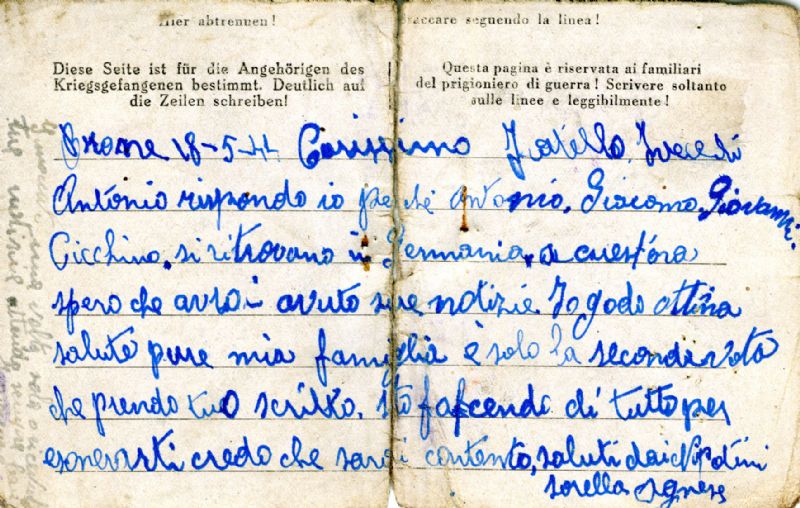 Hier abtrennen!
Staccare seguendo la linea!
Diese Seite ist für die Angehörigen des
Kriegsgefangenen bestimmt. Deutlich auf
die Zeilen schreiben!
Questa pagina è riservata ai familiari
del prigioniero di guerra! Scrivere soltanto
sulle linee e leggibilmente!
18-5-44 Carissimo Fratello, Invece di
António rispondo io perche Antonio, Giacomo, Giovanni.
Cicchino, si ritrovano in Germania, a cuest'ora
spero che avrai avuto sue notizie. Io godo ottima
saluto pure mia famiglia è solo la seconda volta
che prendo tuo scritto. sto facendo di tutto per
esonerarti credo che sarai contento, saluti dai Nipotini
sorella Agnese